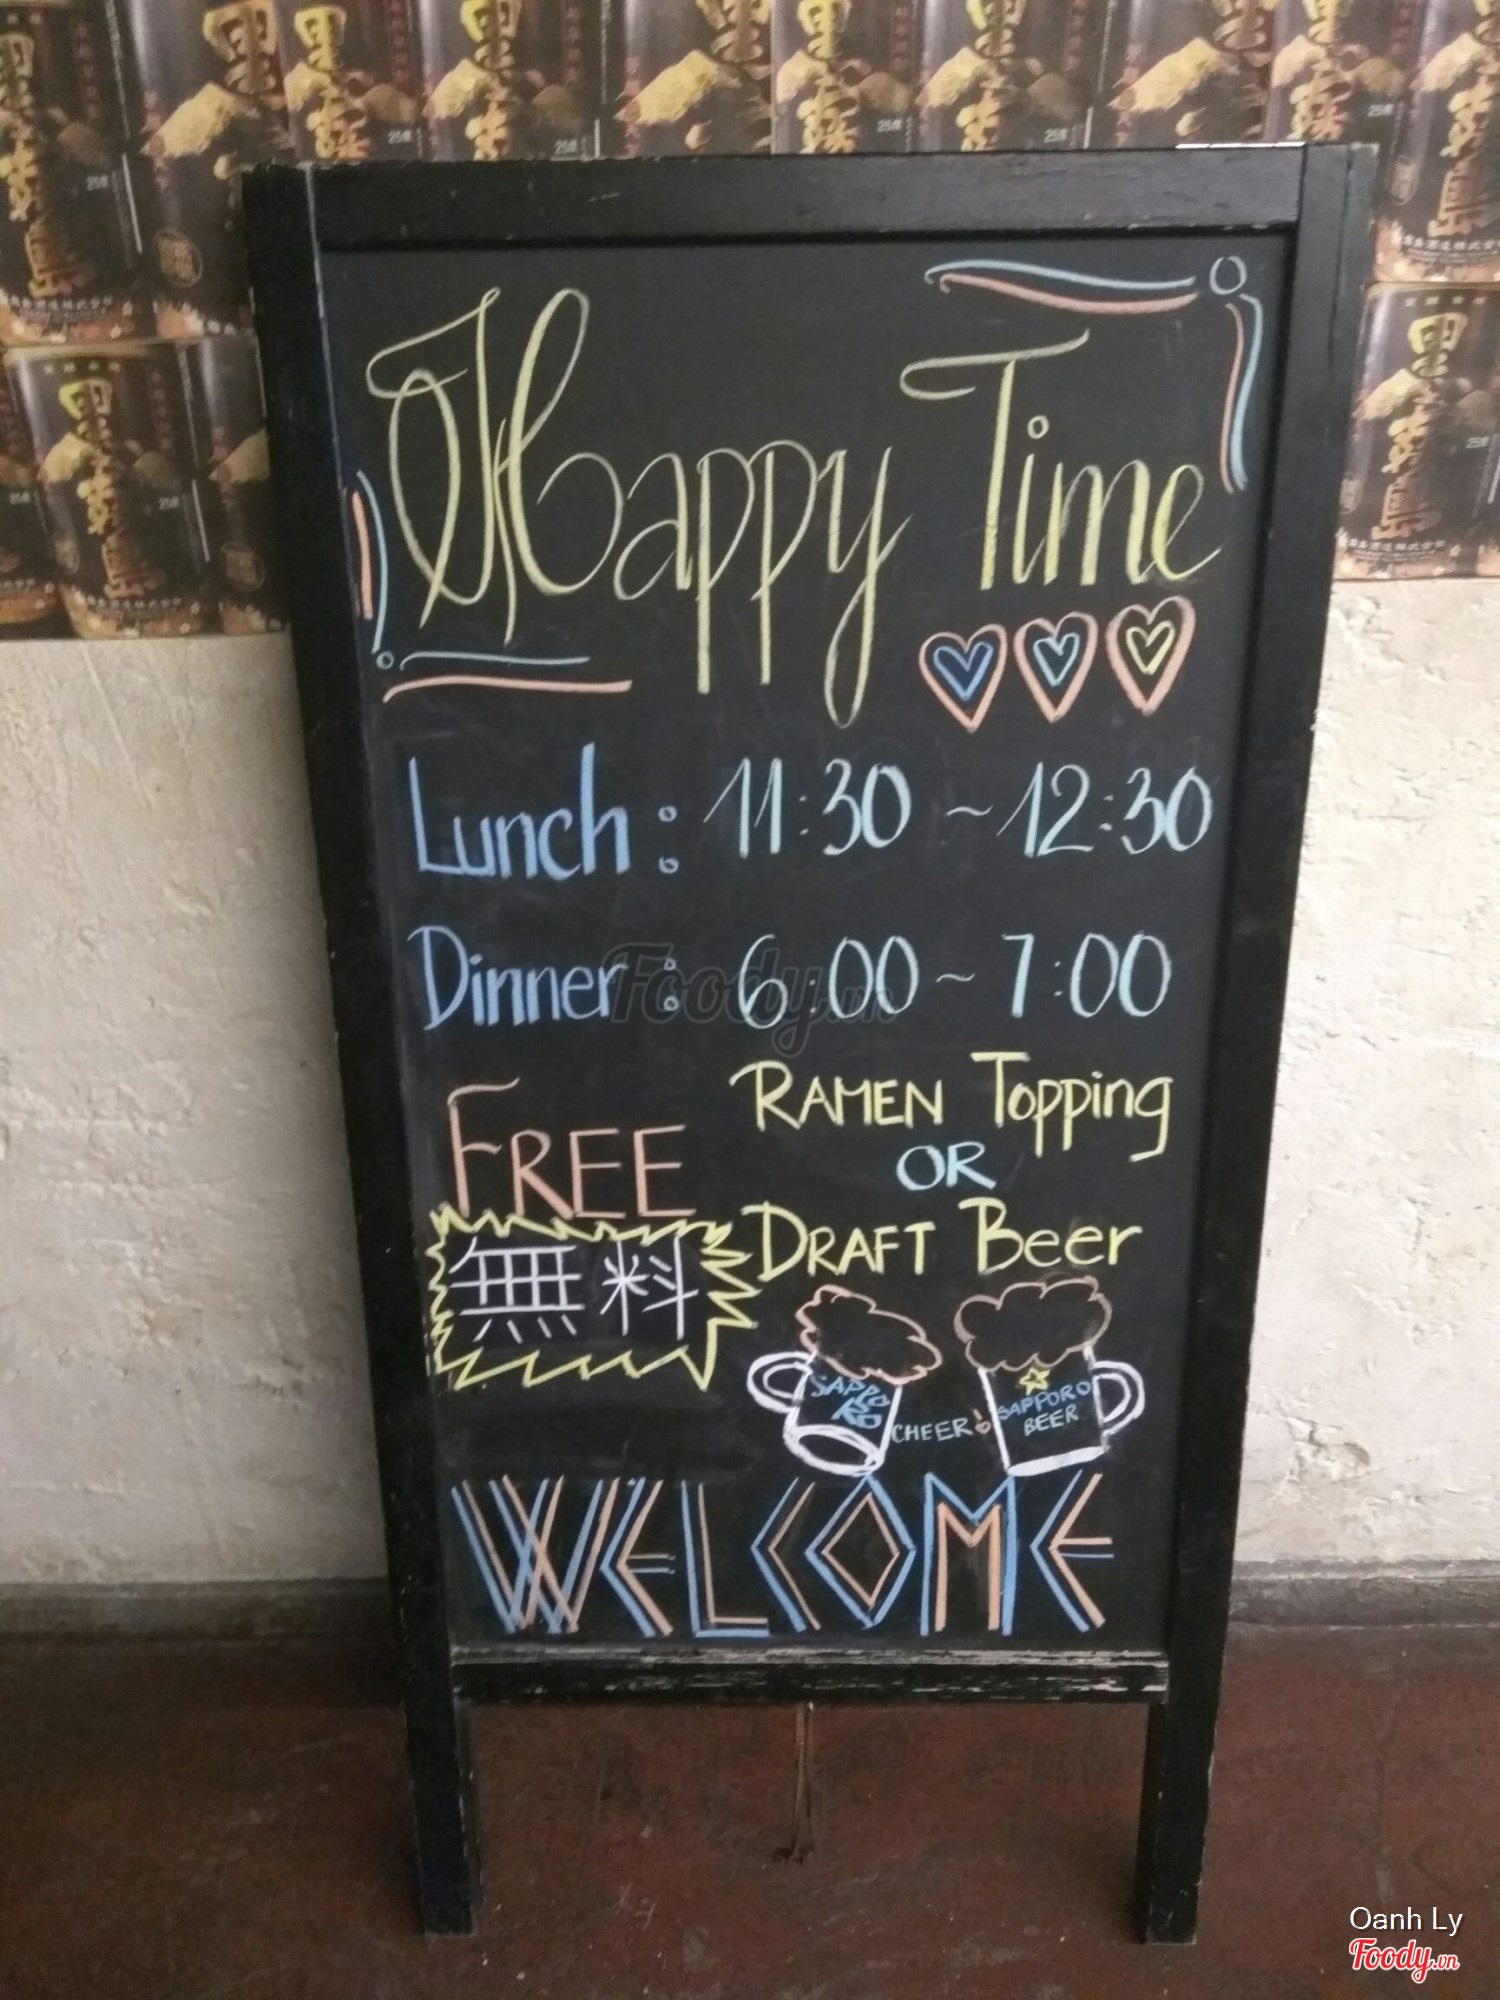 Happy Time
Lunch : 11:30 ~ 12:30
Dinner : 6:00 ~ 7:00
FREE
無料
RAMEN Topping
OR
DRAFT Beer
SAPPORO
CHEER!
SAPPORO
BEER
WELCOME
Foody.vn
Oanh Ly
Foody.vn